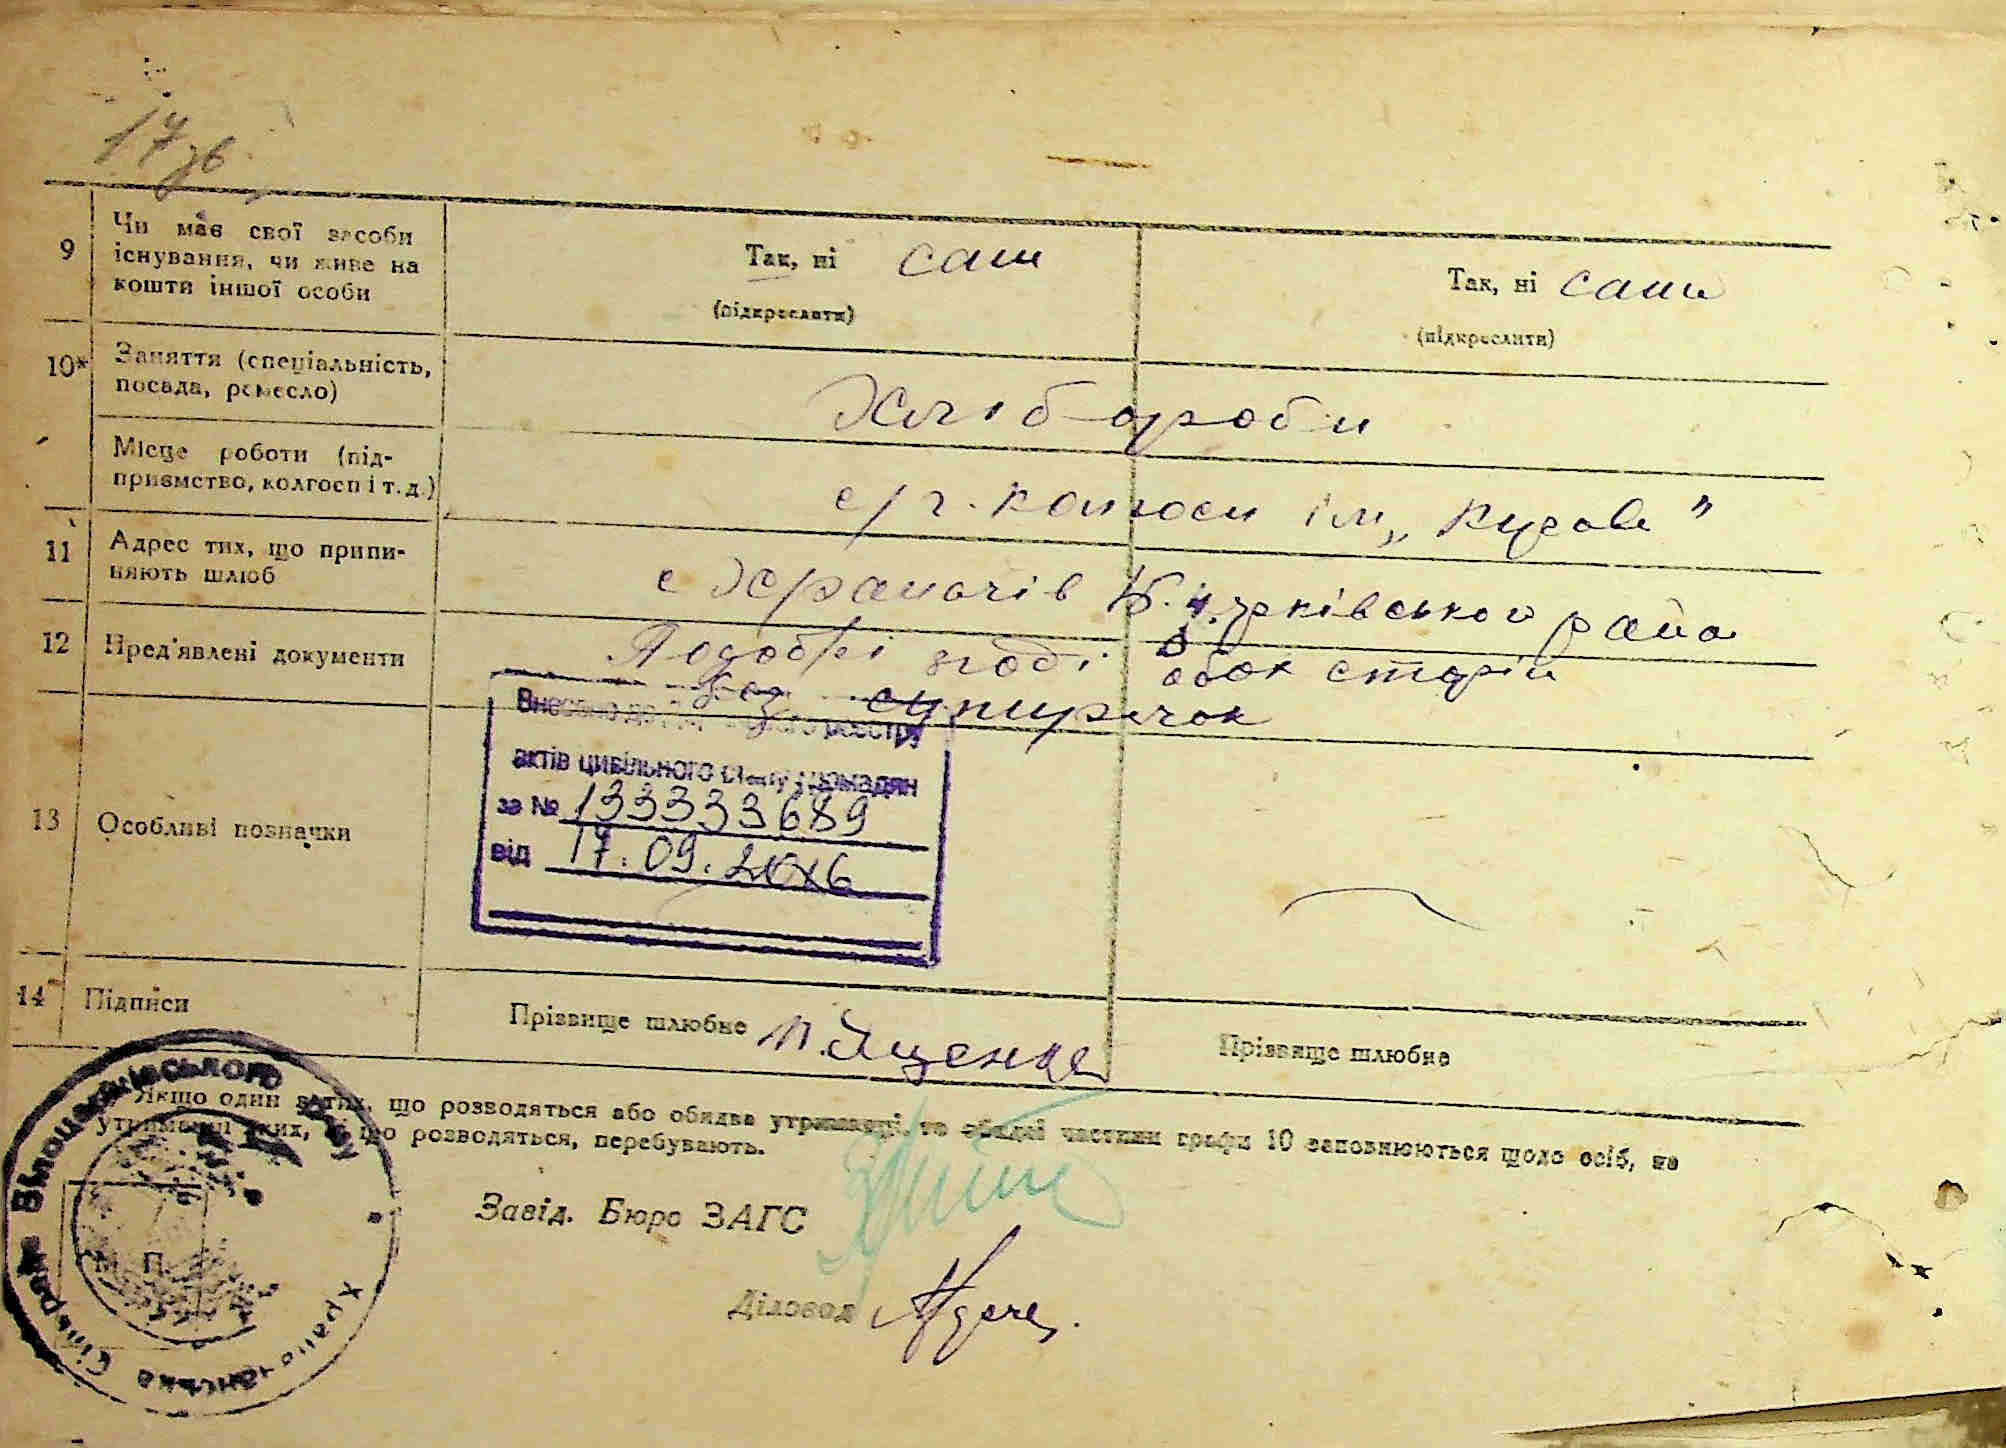 17 зв
9 Чи має свої засоби існування, чи живе на кошти іншої особи
Так, ні сами
(підкреслити)
Так, ні сами
(підкреслити)
10* Заняття (спеціальність, посада, ремесло)
Хлібороби
Місце роботи (підприємство, колгосп і т.д.)
с/г. колгосп ім „
11 Адрес тих, що припиняють шлюб
с Храпачів Б. Церківського району
12 Пред'явлені документи
По добрій згоді обох сторін
без супиречок
13 Особливі позначки
Внесено до Державного реєстру
актів цивільного стану громадян
за № 133333689
від 17.09.2016
14 Підписи
Прізвище шлюбне
Яценко
Прізвище шлюбне
*) Якщо один з тих, що розводяться або обидва утриманці, то обидві частини графи 10 заповнюються щодо осіб, на
утриманні яких, ті що розводяться, перебувають.
Завід. Бюро ЗАГС
Діловод
М. П.
Білоцерківського району
Храпачанська Сільрада